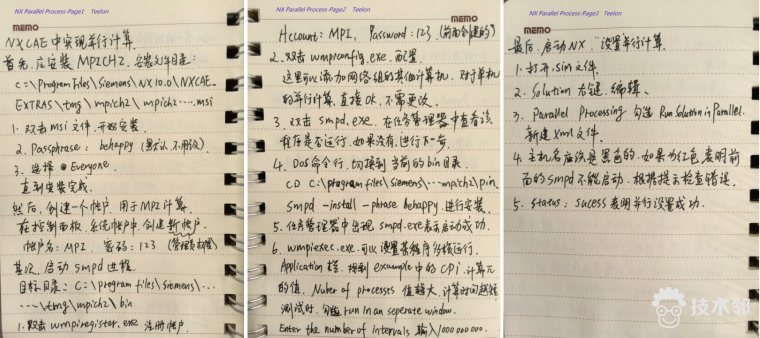 NX Parallel Process-Page1 Teelon
MEMO
NXCAE中实现并行计算.
首先,应安装MPICH2,安装文件目录:
C:\Program Files\Siemens\NX10.0\NXCAE_
EXTRAS\tmg\mpich2\mpich2....msi
1. 双击msi文件,开始安装
2. Passphrase: behappy (默认,不用改)
3. 选择 Everyone
直到安装完成.
然后,创建一个帐户,用于MPI计算.
在控制面板,系统帐户中,创建新帐户.
帐户名:MPI. 密码:123 (管理员权限)
其次,启动smpd进程.
目标目录:C:\program files\siemens\...
...\tmg\mpich2\bin
1. 双击wmpiregister.exe 注册帐户.
NX Parallel Process-Page2 Teelon
MEMO
Account: MPI, Password: 123 (前面创建的)
2. 双击wmpiconfig.exe,配置
这里可以添加网络组的其他计算机,对于单机
的并行计算,直接OK,不需更改.
3. 双击smpd.exe,在任务管理器中查看该
程序是否运行,如果没有,进行下一步.
4. Dos命令行,切换到当前的bin目录.
CD C:\program files\siemens\...mpich2\bin.
smpd -install -phrase behappy.进行安装.
5. 任务管理器中出现smpd.exe表示启动成功.
6. wmpiexec.exe,可以设置某程序多核运行.
Application栏,找到example中的CPi,计算π
的值, Nuber of processes 值越大,计算时间越短
测试时,勾选run in an seperate window.
Enter the number of intervals 输入1000 000 000.
NX Parallel Process-Page3 Teelon
MEMO
最后,启动NX,设置并行计算.
1. 打开.sim文件.
2. Solution 右键,编辑.
3. Parallel Processing 勾选 Run Solution in Parallel.
新建Xml文件.
4. 主机名应该是黑色的,如果为红色,表明前
面的smpd不能启动,根据提示检查错误.
5. Status: sucess表明并行设置成功.
技术邻